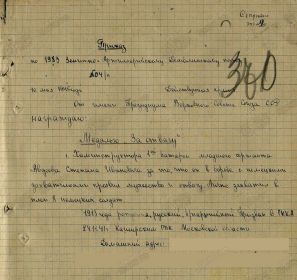 Приказ
по 1983 Зенитно-Артиллерийскому
№04/н
10 мая Действующая армия
360
От имени Президиума Верховного Совета Союза ССР
награждаю:
Медалью "За отвагу"
1. батареи младшего сержанта
Степана Ивановича за то, что он в борьбе с немецкими
захватчиками проявил мужество и отвагу. Лично захватил в
плен 8 немецких солдат.
1913 года рождения, русский, беспартийный. Призван в РККА
Каширским РВК Московской области
Домашний адрес: